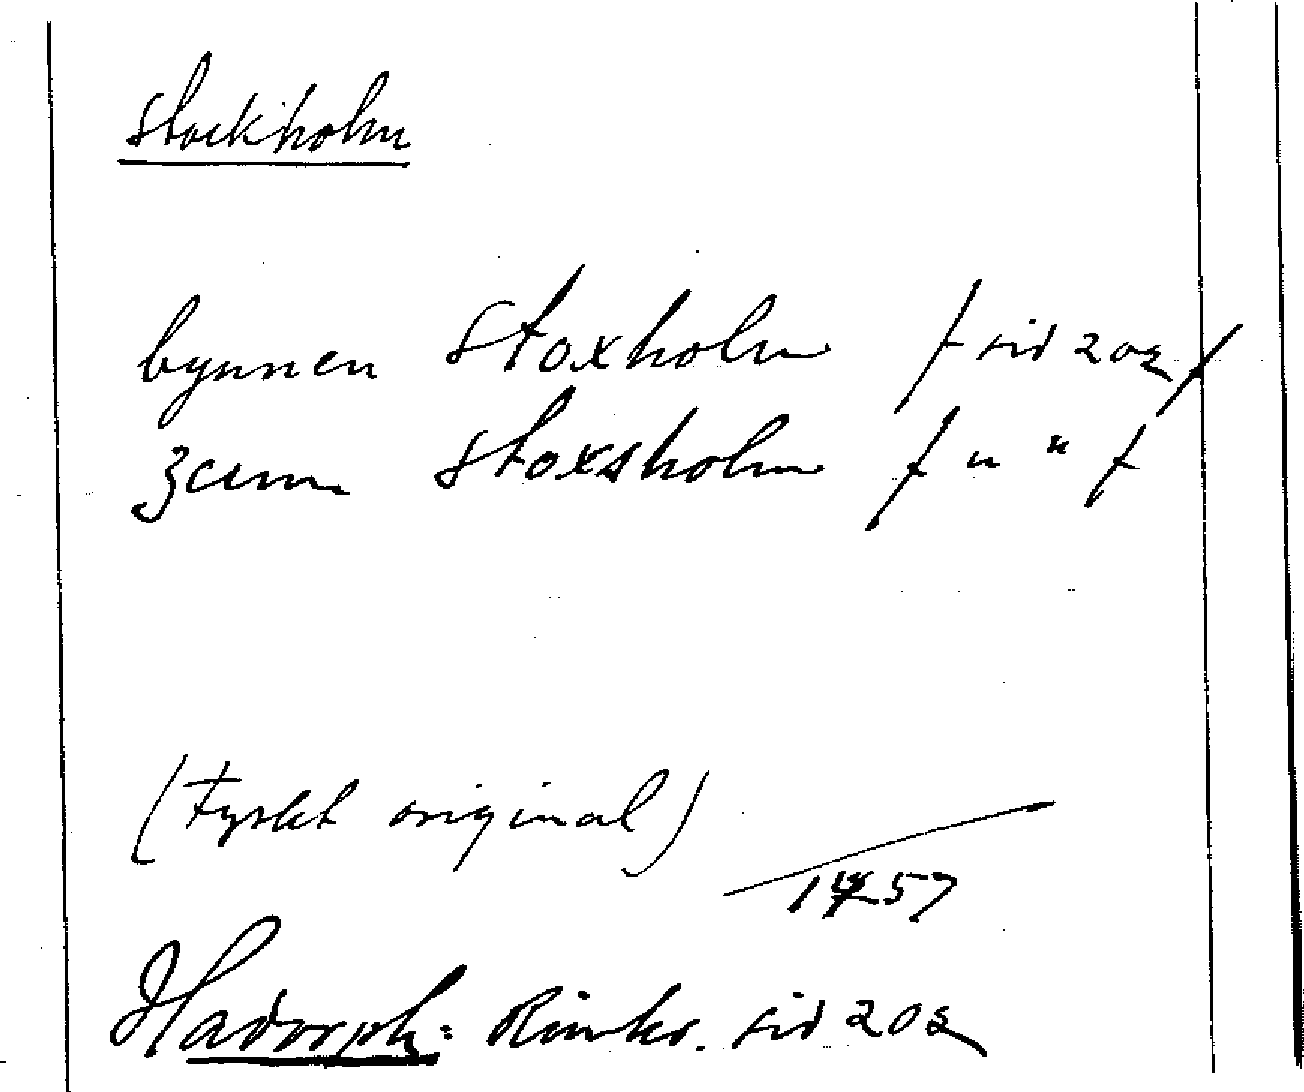 Stockholm
bynnen Stoxholm / sid 202 /
zcum Stoxsholm / " " /
(Tyskt original)
1457
Hadorph: Rimkr. sid 202